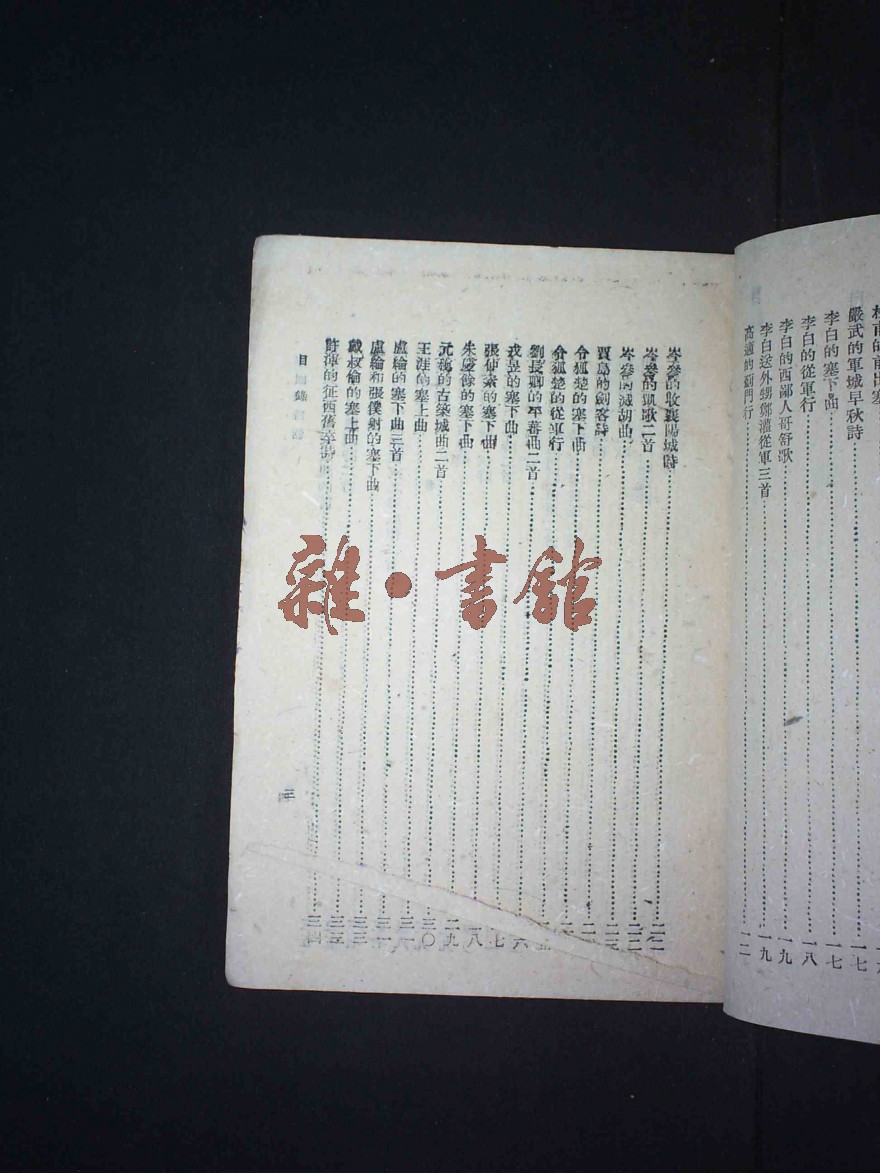 嚴武的軍城早秋詩……一七
李白的塞下曲……一七
李白的從軍行……一八
李白的西鄙人哥舒歌……一九
李白送外甥鄭灌從軍三首……一九
高適的薊門行……
岑參的收襄陽城詩……
岑參的凱歌二首……
岑參的滅胡曲……二二
賈島的劍客詩……
令狐楚的塞下曲……
令狐楚的從軍行……
劉長卿的平蕃曲二首……
戎昱的塞下曲……
張仲素的塞下曲……
朱慶餘的塞下曲……
元稹的古築城曲二首……二九
王涯的塞上曲……三〇
盧綸的塞下曲三首……
盧綸和張僕射的塞下曲……
戴叔倫的塞上曲……三三
的征西舊卒詩……三四
目錄
三
雜·書館